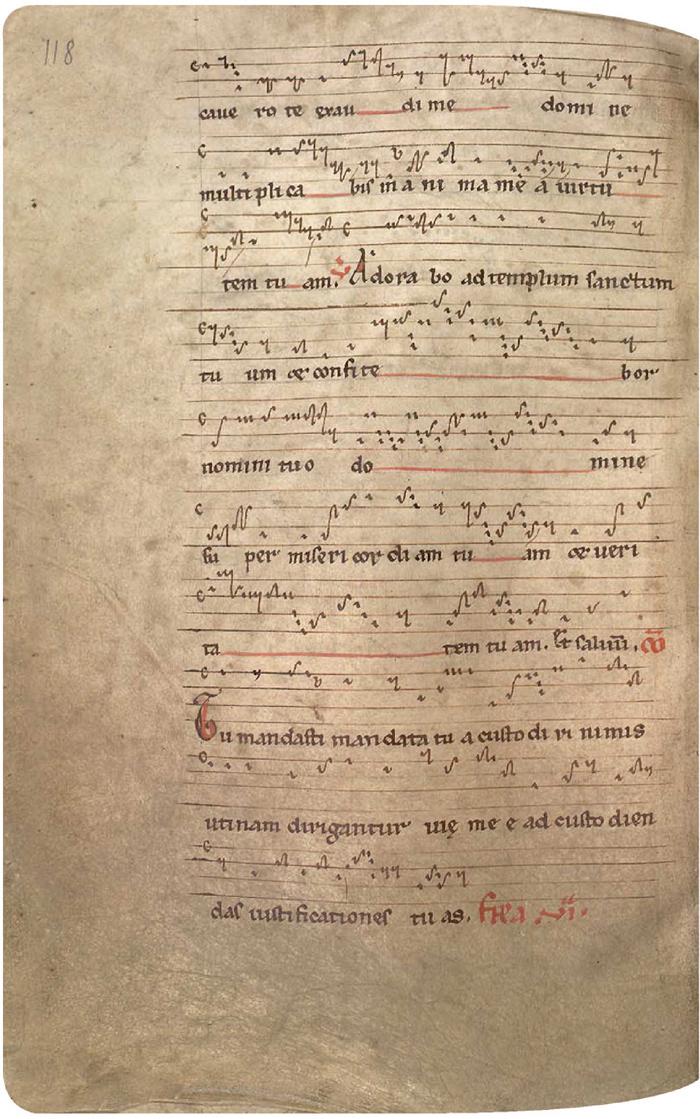 118
caue ro te exau di me domi ne
multi pli ca bis in a ni ma me a uirtu
tem tu am. V Adora bo ad templum sanctum
tu um et confite bor
nomini tuo do mine
su per miseri cor di am tu am et ueri
ta tem tu am. Et saluū. cō
Tu mandasti mandata tu a custo di ri nimis
utinam dirigantur uię me e ad custo dien
das iustificationes tu as. fr̄a vi.